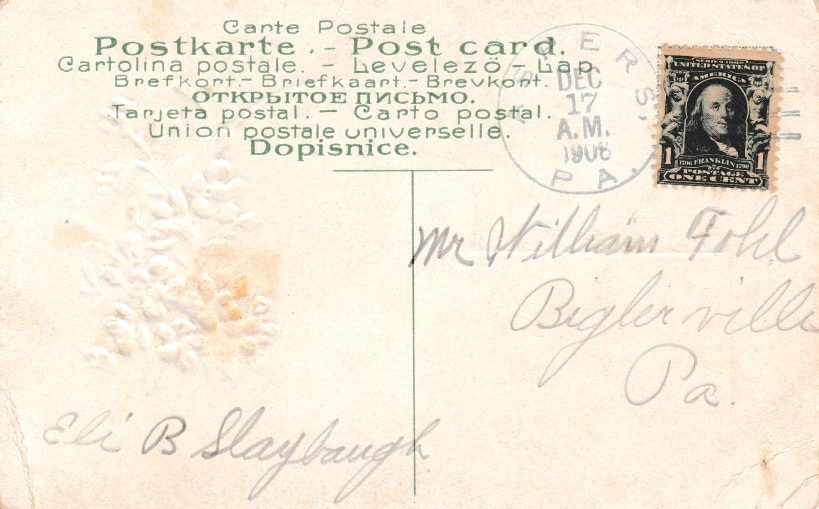 Carte Postale
Postkarte. - Post card.
Cartolina postale. - Levelezö - Lap.
Brefkort. - Briefkaart. - Brevkort.
ОТКРЫТОЕ ПИСЬМО.
Tarjeta postal. - Carto postal.
Union postale universelle.
Dopisnice.
DEC
17
A.M.
1908
PA.
SERIES 1902
UNITED STATES OF
AMERICA
1706 FRANKLIN 1790
1 POSTAGE 1
ONE CENT
Mr William Fohl
Biglerville
Pa.
Eli B Slaybaugh